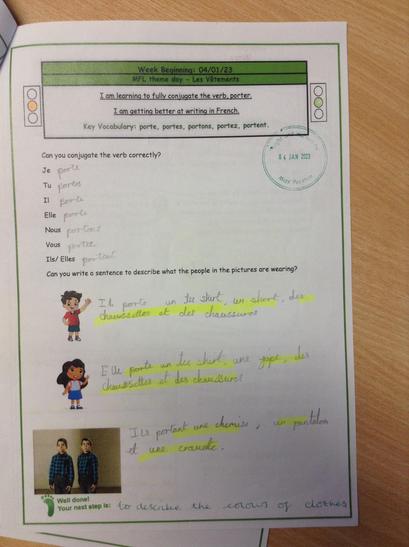 Week Beginning: 04/01/23
MFL theme day – Les Vêtements
I am learning to fully conjugate the verb, porter.
I am getting better at writing in French.
Key Vocabulary: porte, portes, portons, portez, portent.
04 JAN 2023
Can you conjugate the verb correctly?
Je porte
Tu portes
Il porte
Elle porte
Nous portons
Vous
Ils/ Elles
Can you write a sentence to describe what the people in the pictures are wearing?
Il porte un tee shirt, un short, des
chaussettes et des chaussures
Elle porte un tee shirt, une jupe, des
chaussettes et des chaussures
Ils portant une chemise, un pantalon
et une cravate.
Well done!
Your next step is: to describe the colour of clothes